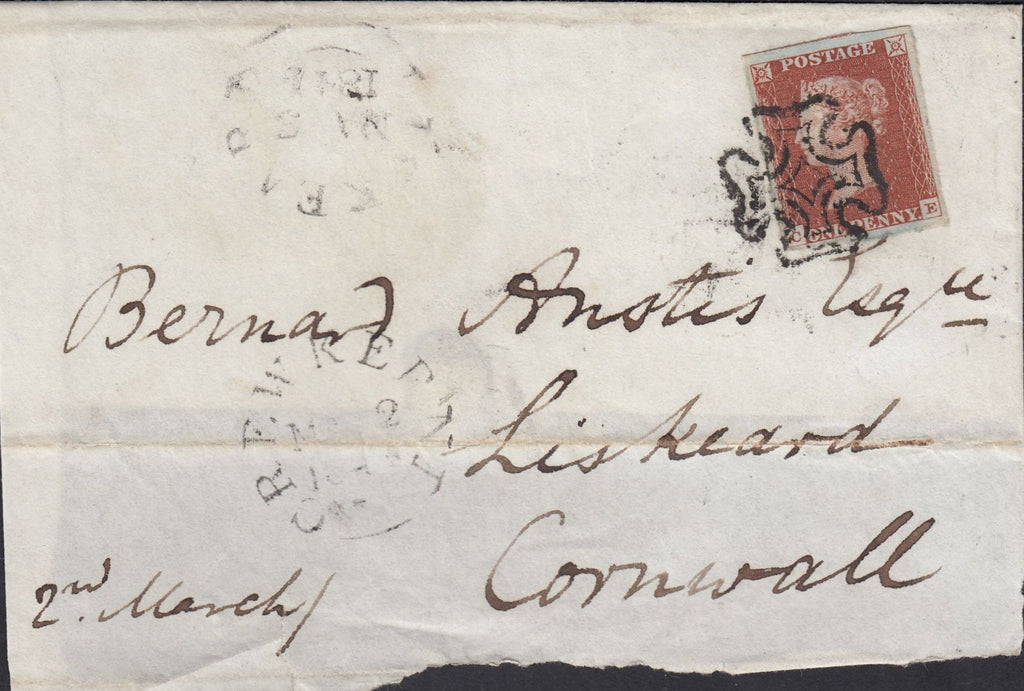 POSTAGE
C ONE PENNY E
Bernard Anstis Esqre
Liskeard
Cornwall
2nd. March/